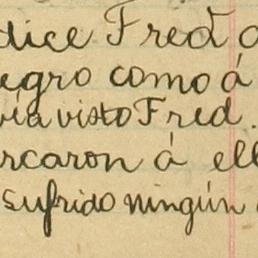 dice Fred
egro como á
vía visto Fred.
rcaron á ell
sufrido ningún